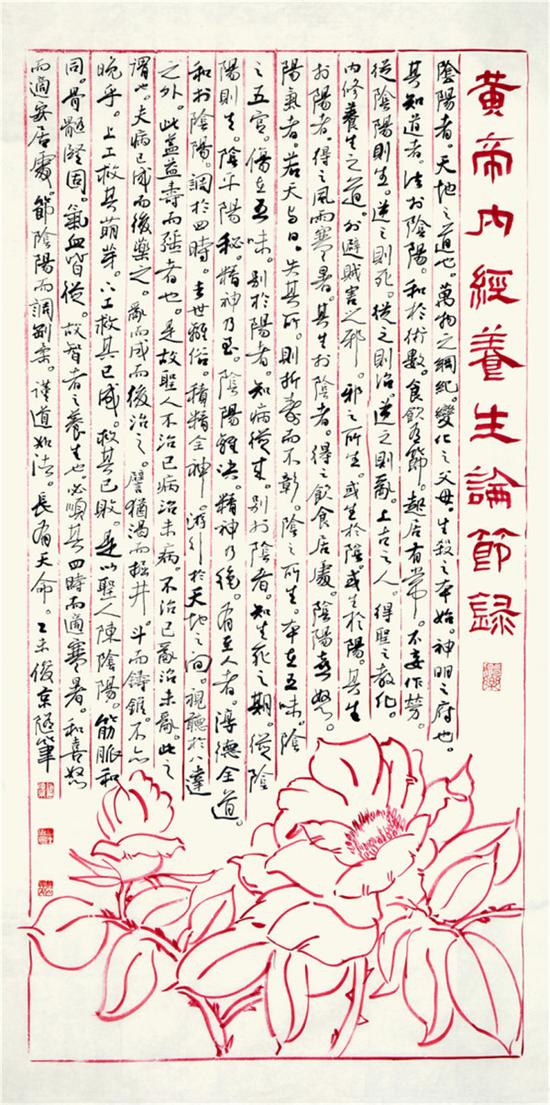 黃帝內經養生論節錄
陰陽者。天地之道也。萬物之綱紀。變化之父母。生殺之本始。神明之府也。
其知道者。法於陰陽。和於術數。食飲有節。起居有常。不妄作勞。
從陰陽則生。逆之則死。從之則治。逆之則亂。上古之人。得聖之教化。
內修養生之道。外避賊害之邪。邪之所生。或生於陰。或生於陽。其生
於陽者。得之風雨寒暑。其生於陰者。得之飲食居處。陰陽喜怒。
陽氣者。若天與日。失其所。則折壽而不彰。陰之所生。本在五味。陰
之五宮。傷在五味。別於陽者。知病從來。別於陰者。知生死之期。從陰
陽則生。陰平陽秘。精神乃至。陰陽離決。精神乃絕。有至人者。淳德全道。
和於陰陽。調於四時。去世離俗。積精全神。游行於天地之間。視聽於八達
之外。此蓋益壽而強者也。是故聖人不治已病治未病。不治已亂治未亂。此之
謂也。夫病已成而後藥之。亂而成而後治之。譬猶渴而掘井。斗而鑄錐。不亦
晚乎。上工救其萌芽。下工救其已成。救其已敗。是以聖人陳陰陽。筋脈和
同。骨髓堅固。氣血皆從。故智者之養生也。必順其四時而適寒暑。和喜怒
而適安居處。節陰陽而調剛柔。謹道如法。長有天命。乙未俊京隨筆